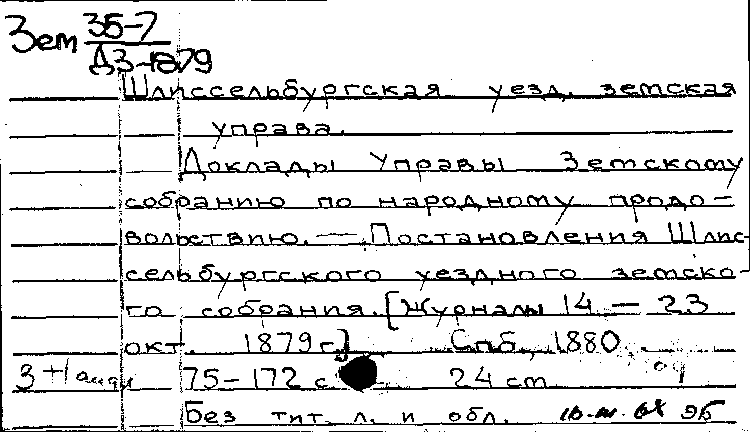 Зем 35-7
Д3-1879
Шлиссельбургская уезд. земская
управа.
Доклады Управы Земскому
собранию по народному продо-
вольствию. — Постановления Шлис-
сельбургского уездного земско-
го собрания. [Журналы 14 — 23
окт. 1879 г.] Спб., 1880.
75-172 с. 24 см
Без тит. л. и обл.